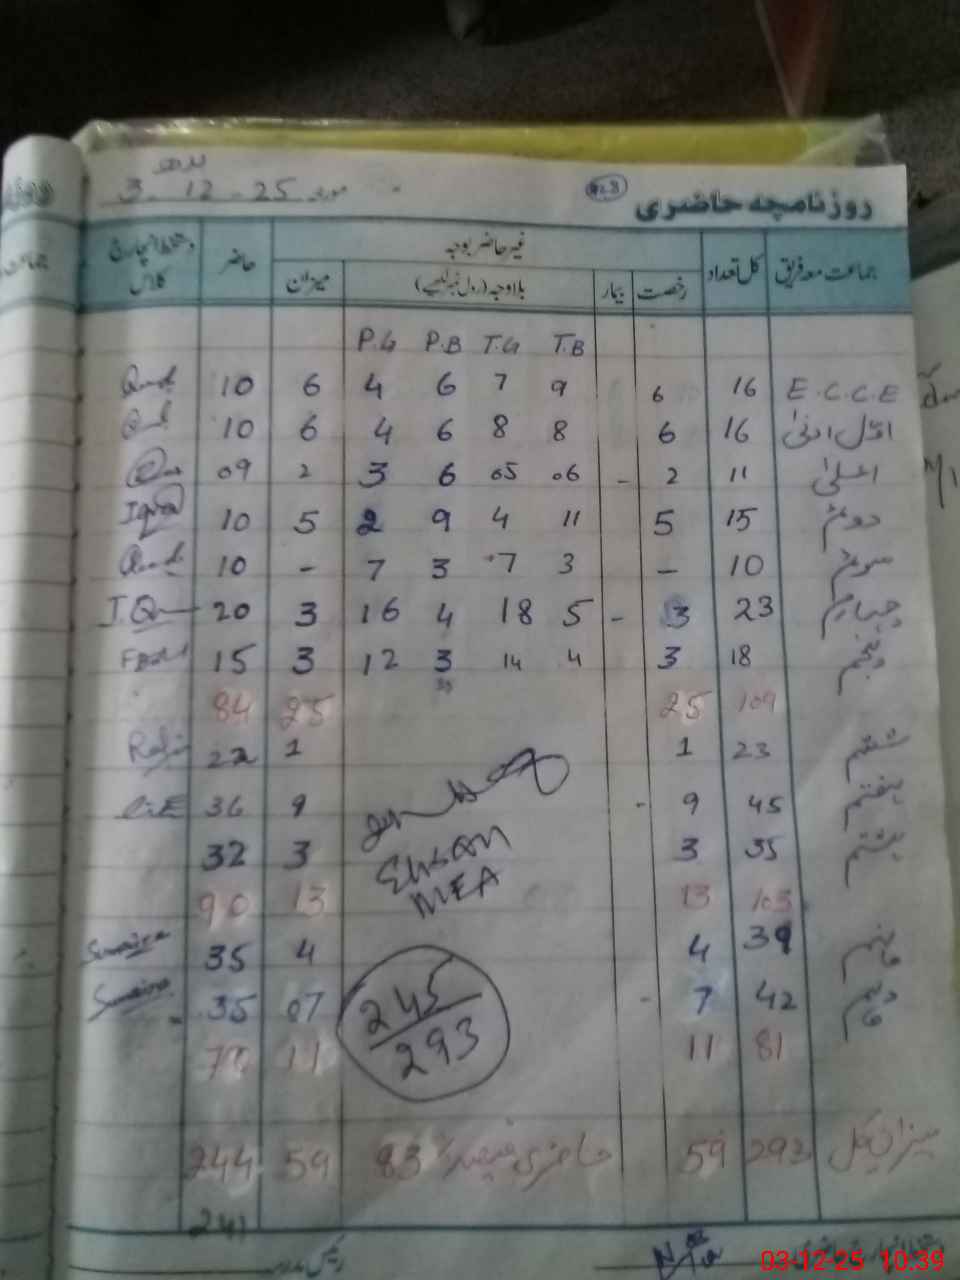 بدھ
مورخہ 3-12-25
روزنامچہ حاضری
جماعت معہ فریق کل تعداد غیر حاضر بوجہ حاضر دستخط انچارج کلاس
رخصت بیمار بلاوجہ (رول نمبر لکھیے) میزان
P.G P.B T.G T.B
E.C.C.E 16 6 9 7 6 4 6 10
اوّل ادنیٰ 16 6 8 8 6 4 6 10
اعلیٰ 11 2 - 06 05 6 3 2 09
دوئم 15 5 11 4 9 2 5 10 Iqra
سوئم 10 - 3 7 3 7 - 10
چہارم 23 3 - 5 18 4 16 3 20 I.Q
پنجم 18 3 4 14 3 12 3 15
109 25 25 84
ششم 23 1 1 22
ہفتم 45 9 - 9 36
ہشتم 35 3 3 32
Ehsan
MEA
103 13 13 90
نہم 39 4 4 35 Sumaira
دہم 42 7 - 07 35 Sumaira
245
293
81 11 11 70
میزان کل 293 59 حاضری فیصد % 83 59 244
241
رئیس مدرسہ
03-12-25 10:39